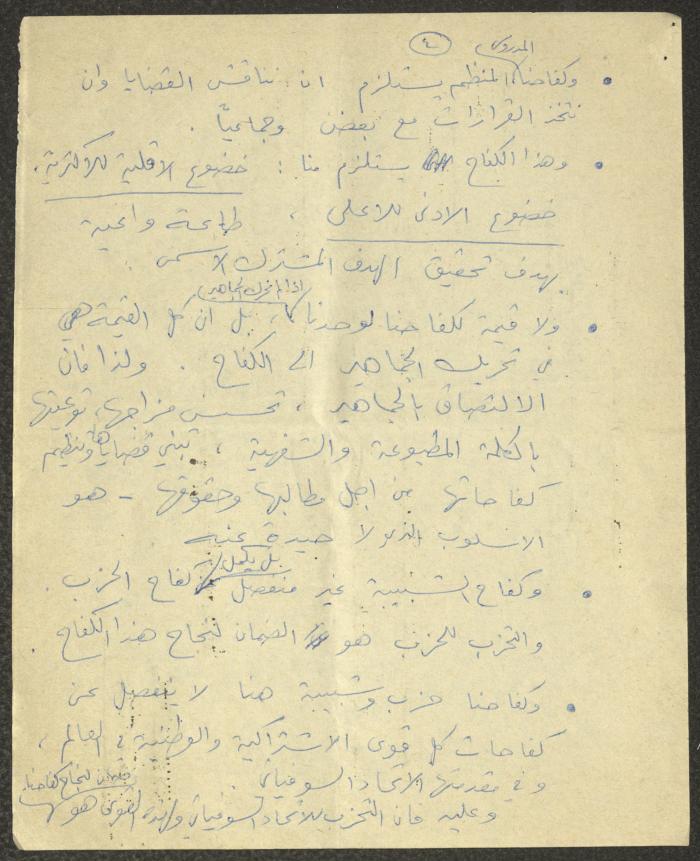 ٤ المدروس
• وكفاحنا المنظم يستلزم ان نناقش القضايا وان
نتخذ القرارات مع بعض وجماعيًا .
• وهذا الكفاح يستلزم منا : خضوع الاقلية للاكثرية،
خضوع الادنى للاعلى ، طاعة واعية
بهدف تحقيق الهدف المشترك الاسمى .
اذا لم نحرك الجماهير
• ولا قيمة لكفاحنا لوحدنا، بل ان كل القيمة هي
في تحريك الجماهير الى الكفاح . ولذا فان
الالتصاق بالجماهير ، تحسس مزاجها، توعيتها
بالكلمة المطبوعة والشفهية ، تبني قضاياها وتنظيم
كفاحاتها من اجل مطالبها وحقوقها - هو
الاسلوب الذي لا حيدة عنه
بل مكمل لـ
• وكفاح الشبيبة غير منفصل كفاح الحزب .
والتحزب للحزب هو الضمان لنجاح هذا الكفاح .
• وكفاحنا حزب وشبيبة هنا لا ينفصل عن
كفاحات كل قوى الاشتراكية والوطنية في العالم ،
وفي مقدمتها الاتحاد السوفياتي.
ضمان لنجاح كفاحنا.
وعليه فان التحزب للاتحاد السوفياتي ولهذه القوى هو